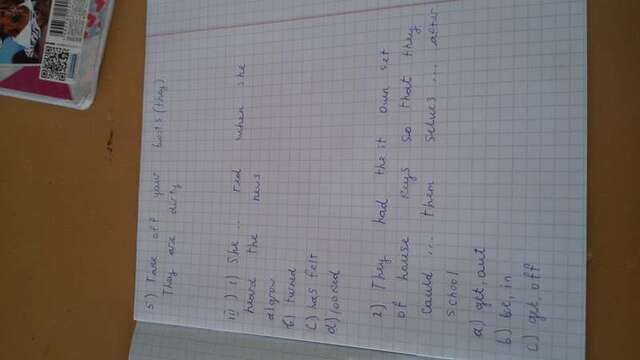 5) Take off your boots (they)
They are dirty
iii) 1) She ... red when she
heard the news
a) grow
b) turned
c) has felt
d) looked
2) They had the it own set
of house keys so that they
could .... them selves .... after
school
a) get, out
b) be, in
c) get, off